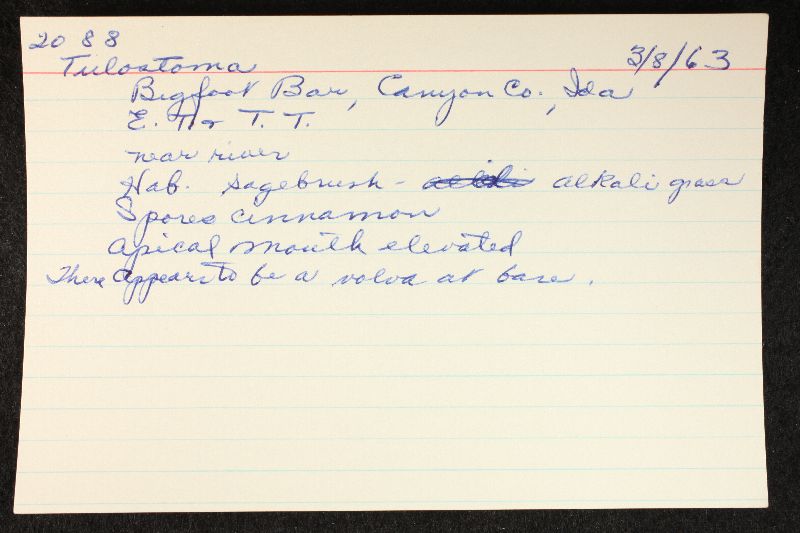 2088
Tulostoma 3/8/63
Bigfoot Bar, Canyon Co., Ida
E. T. & T. T.
near river
Hab. sagebrush - alkali grass
Spores cinnamon
apical mouth elevated
There appears to be a volva at base.